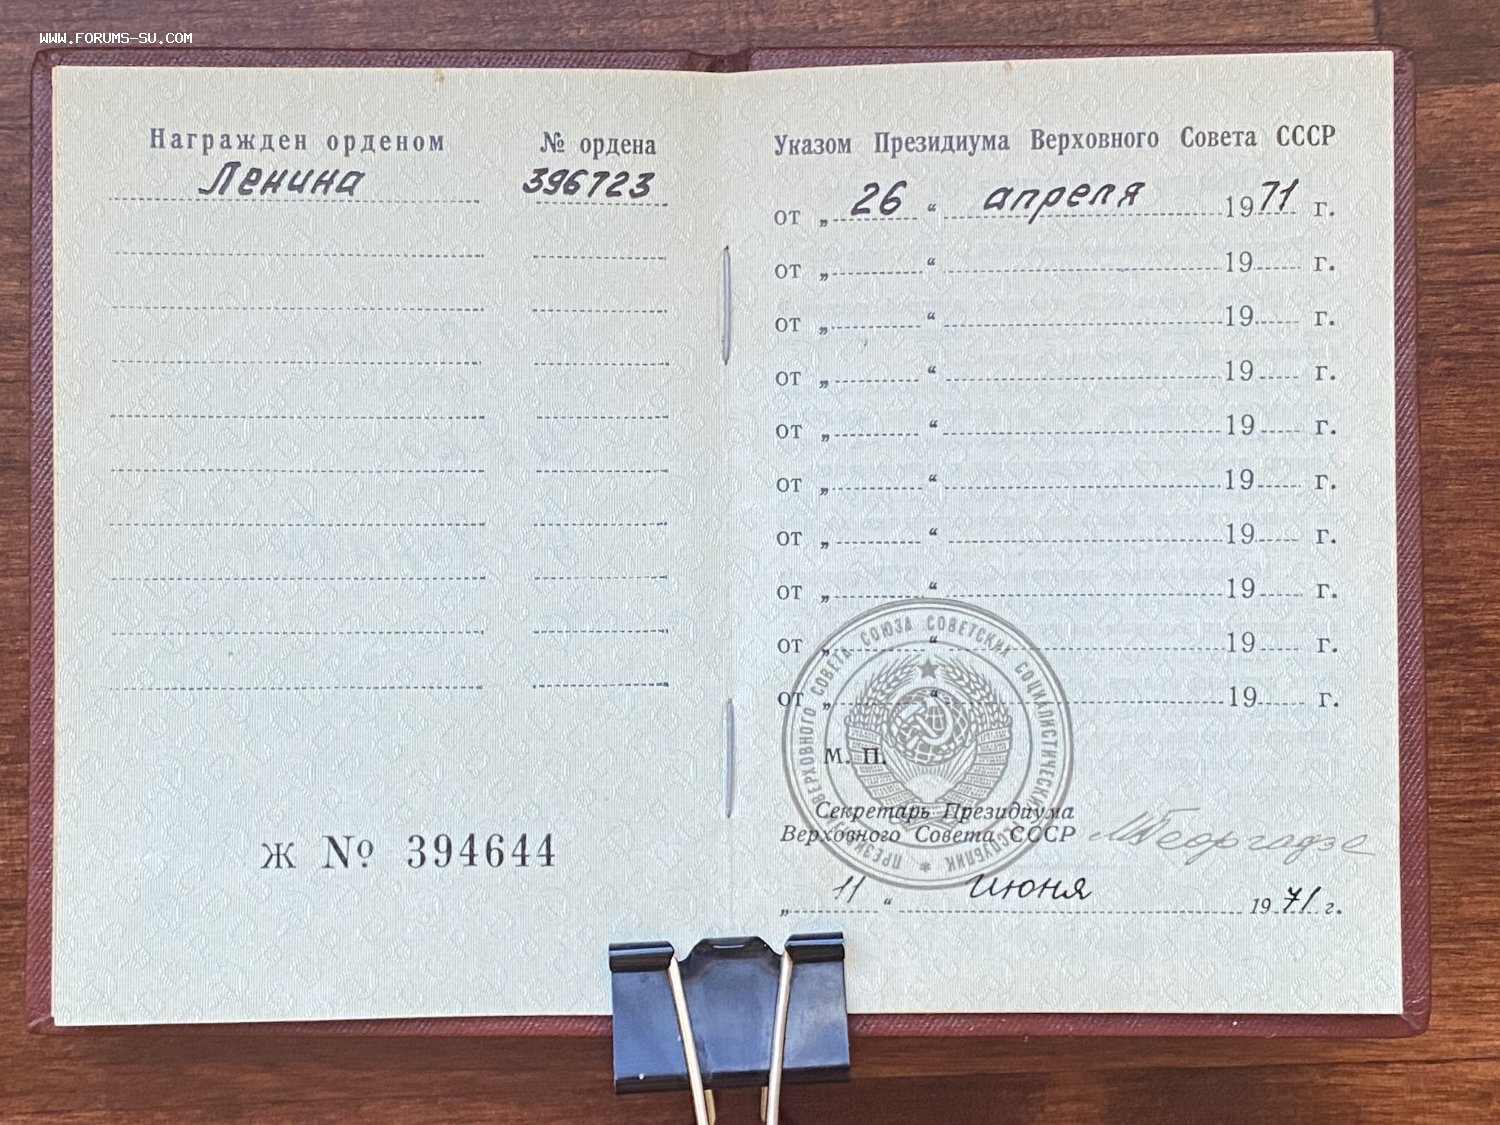 WWW.FORUMS-SU.COM
Награжден орденом № ордена
Ленина 396723
Ж № 394644
Указом Президиума Верховного Совета СССР
от „ 26 “ апреля 1971 г.
от „ “ 19 г.
от „ “ 19 г.
от „ “ 19 г.
от „ “ 19 г.
от „ “ 19 г.
от „ “ 19 г.
от „ “ 19 г.
от „ “ 19 г.
от „ “ 19 г.
ПРЕЗИДИУМ ВЕРХОВНОГО СОВЕТА СОЮЗА СОВЕТСКИХ СОЦИАЛИСТИЧЕСКИХ РЕСПУБЛИК
М. П.
Секретарь Президиума
Верховного Совета СССР МГеоргадзе
„ 11 “ июня 1971 г.